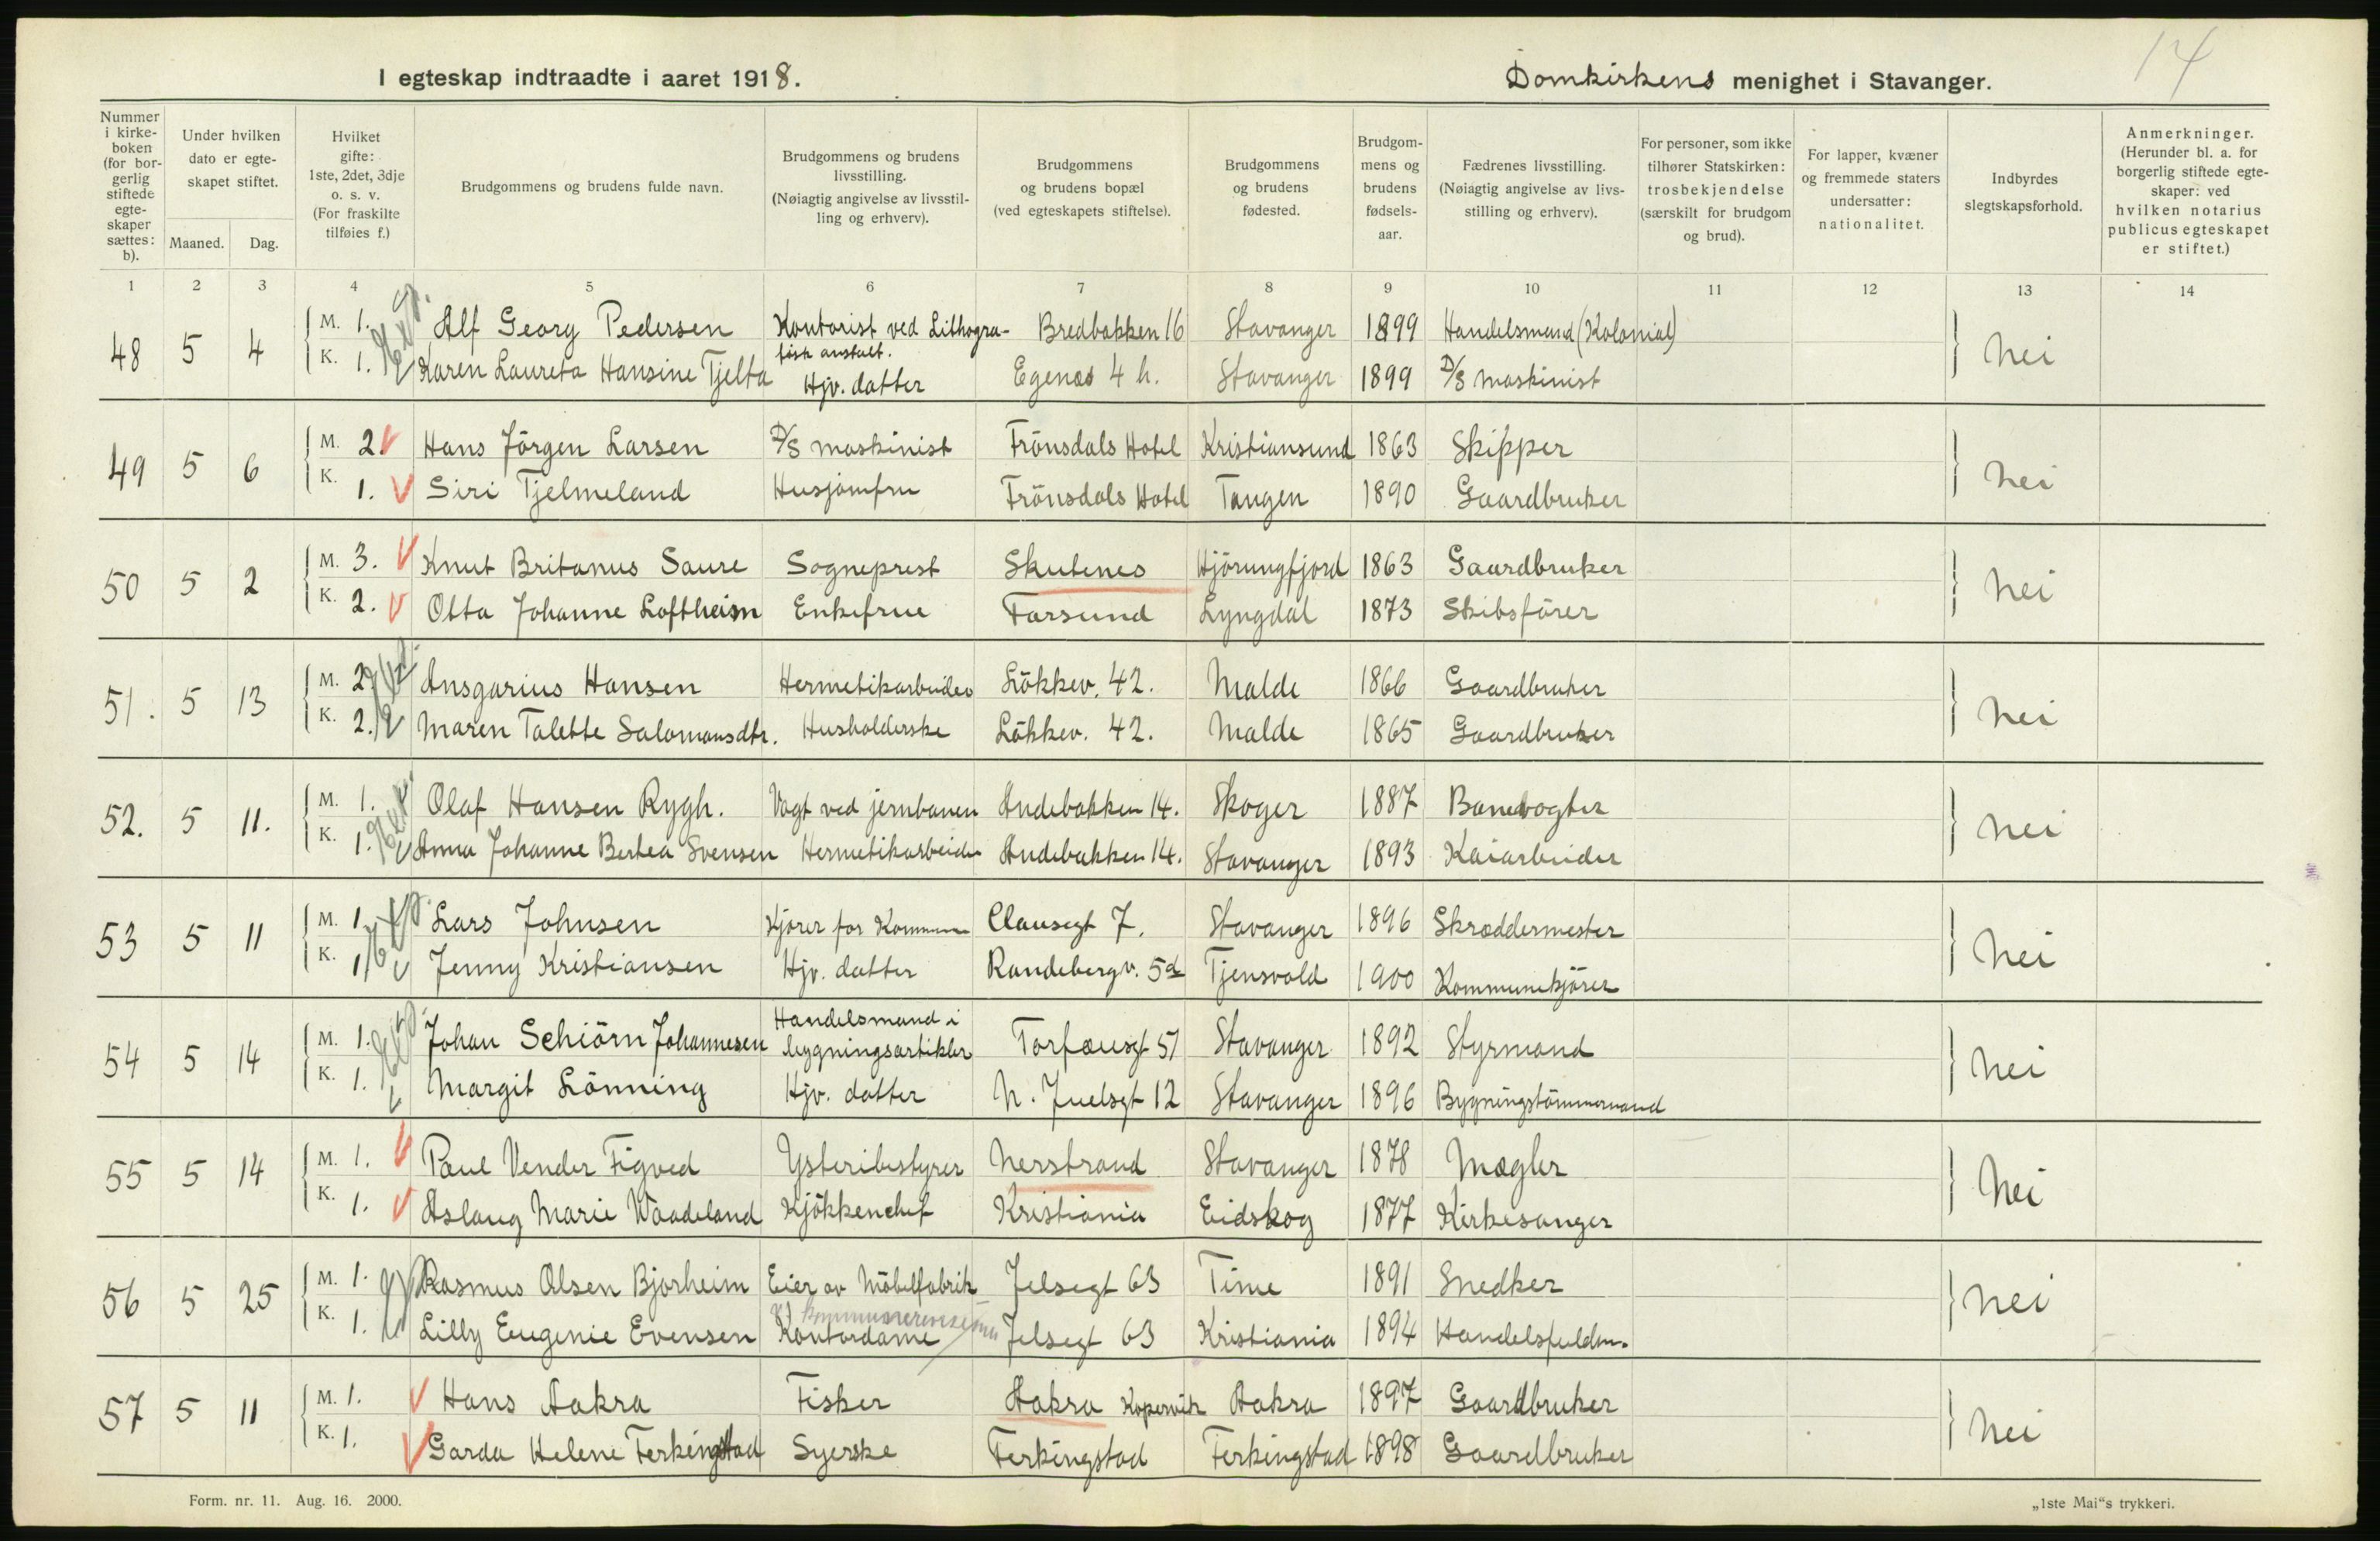 14
I egteskap indtraadte i aaret 1918. Domkirkens menighet i Stavanger.
Nummer i kirkeboken (for borgerlig stiftede egteskaper sættes: b).
Under hvilken dato er egteskapet stiftet. Maaned. Dag.
Hvilket gifte: 1ste, 2det, 3dje o. s. v. (For fraskilte tilføies f.)
Brudgommens og brudens fulde navn.
Brudgommens og brudens livsstilling. (Nøiagtig angivelse av livsstilling og erhverv).
Brudgommens og brudens bopæl (ved egteskapets stiftelse).
Brudgommens og brudens fødested.
Brudgommens og brudens fødselsaar.
Fædrenes livsstilling. (Nøiagtig angivelse av livsstilling og erhverv).
For personer, som ikke tilhører Statskirken: trosbekjendelse (særskilt for brudgom og brud).
For lapper, kvæner og fremmede staters undersatter: nationalitet.
Indbyrdes slegtskapsforhold.
Anmerkninger. (Herunder bl. a. for borgerlig stiftede egteskaper: ved hvilken notarius publicus egteskapet er stiftet.)
1 2 3 4 5 6 7 8 9 10 11 12 13 14
48 5 4 M. 1. Alf Georg Pedersen Kontorist ved Lithografisk anstalt. Bredbakken 16 Stavanger 1899 Handelsmand (Kolonial) nei
K. 1. Karen Laureta Hansine Tjelta Hjv. datter Egenes 4 h. Stavanger 1899 D/S maskinist
49 5 6 M. 2 Hans Jörgen Larsen D/S maskinist Frönsdals Hotel Kristiansund 1863 Skipper nei
K. 1. Siri Tjelmeland Husjomfru Frönsdals Hotel Tangen 1890 Gaardbruker
50 5 2 M. 3. Knut Britanus Saure Sogneprest Skutenes Hjörungfjord 1863 Gaardbruker nei
K. 2. Otta Johanne Loftheim Enkefrue Farsund Lyngdal 1873 Skibsförer
51. 5 13 M. 2 Ansgarius Hansen Hermetikarbeider Lökkev. 42. Malde 1866 Gaardbruker nei
K. 2. Maren Talette Salomonsdtr. Husholderske Lökkev. 42. Malde 1865 Gaardbruker
52. 5 11. M. 1. Olaf Hansen Rygh. Vagt ved jernbanen Andebakken 14. Skoger 1887 Banevogter nei
K. 1. Anna Johanne Bertea Svensen Hermetikarbeider Andebakken 14. Stavanger 1893 Kaiarbeider
53 5 11 M. 1. Lars Johnsen Kjörer for Kommunen Clausegt 7. Stavanger 1896 Skræddermester nei
K. 1 Jenny Kristiansen Hjv. datter Randebergv. 5d Tjensvold 1900 Kommunekjörer
54 5 14 M. 1. Johan Schiörn Johannesen Handelsmand i bygningsartikler Torfæusgt 51 Stavanger 1892 Styrmand nei
K. 1. Margit Lönning Hjv. datter N. Juelsgt 12 Stavanger 1896 Bygningstömmermand
55 5 14 M. 1. Paul Vender Figved Ysteribestyrer Nerstrand Stavanger 1878 Mægler nei
K. 1. Aslaug Marie Waadeland Kjökkenchef Kristiania Eidskog 1877 Kirkesanger
56 5 25 M. 1. Rasmus Olsen Bjorheim Eier av Möbelfabrik Jelsegt 63 Time 1891 Snedker nei
K. 1. Lilly Eugenie Evensen Kontordame Jelsegt 63 Kristiania 1894 Handelsfuldm.
57 5 11 M. 1. Hans Aakra Fisker Aakra Kopervik Aakra 1897 Gaardbruker nei
K. 1. Garda Helene Ferkingstad Syerske Ferkingstad Ferkingstad 1898 Gaardbruker
Form. nr. 11. Aug. 16. 2000.
„1ste Mai“s trykkeri.